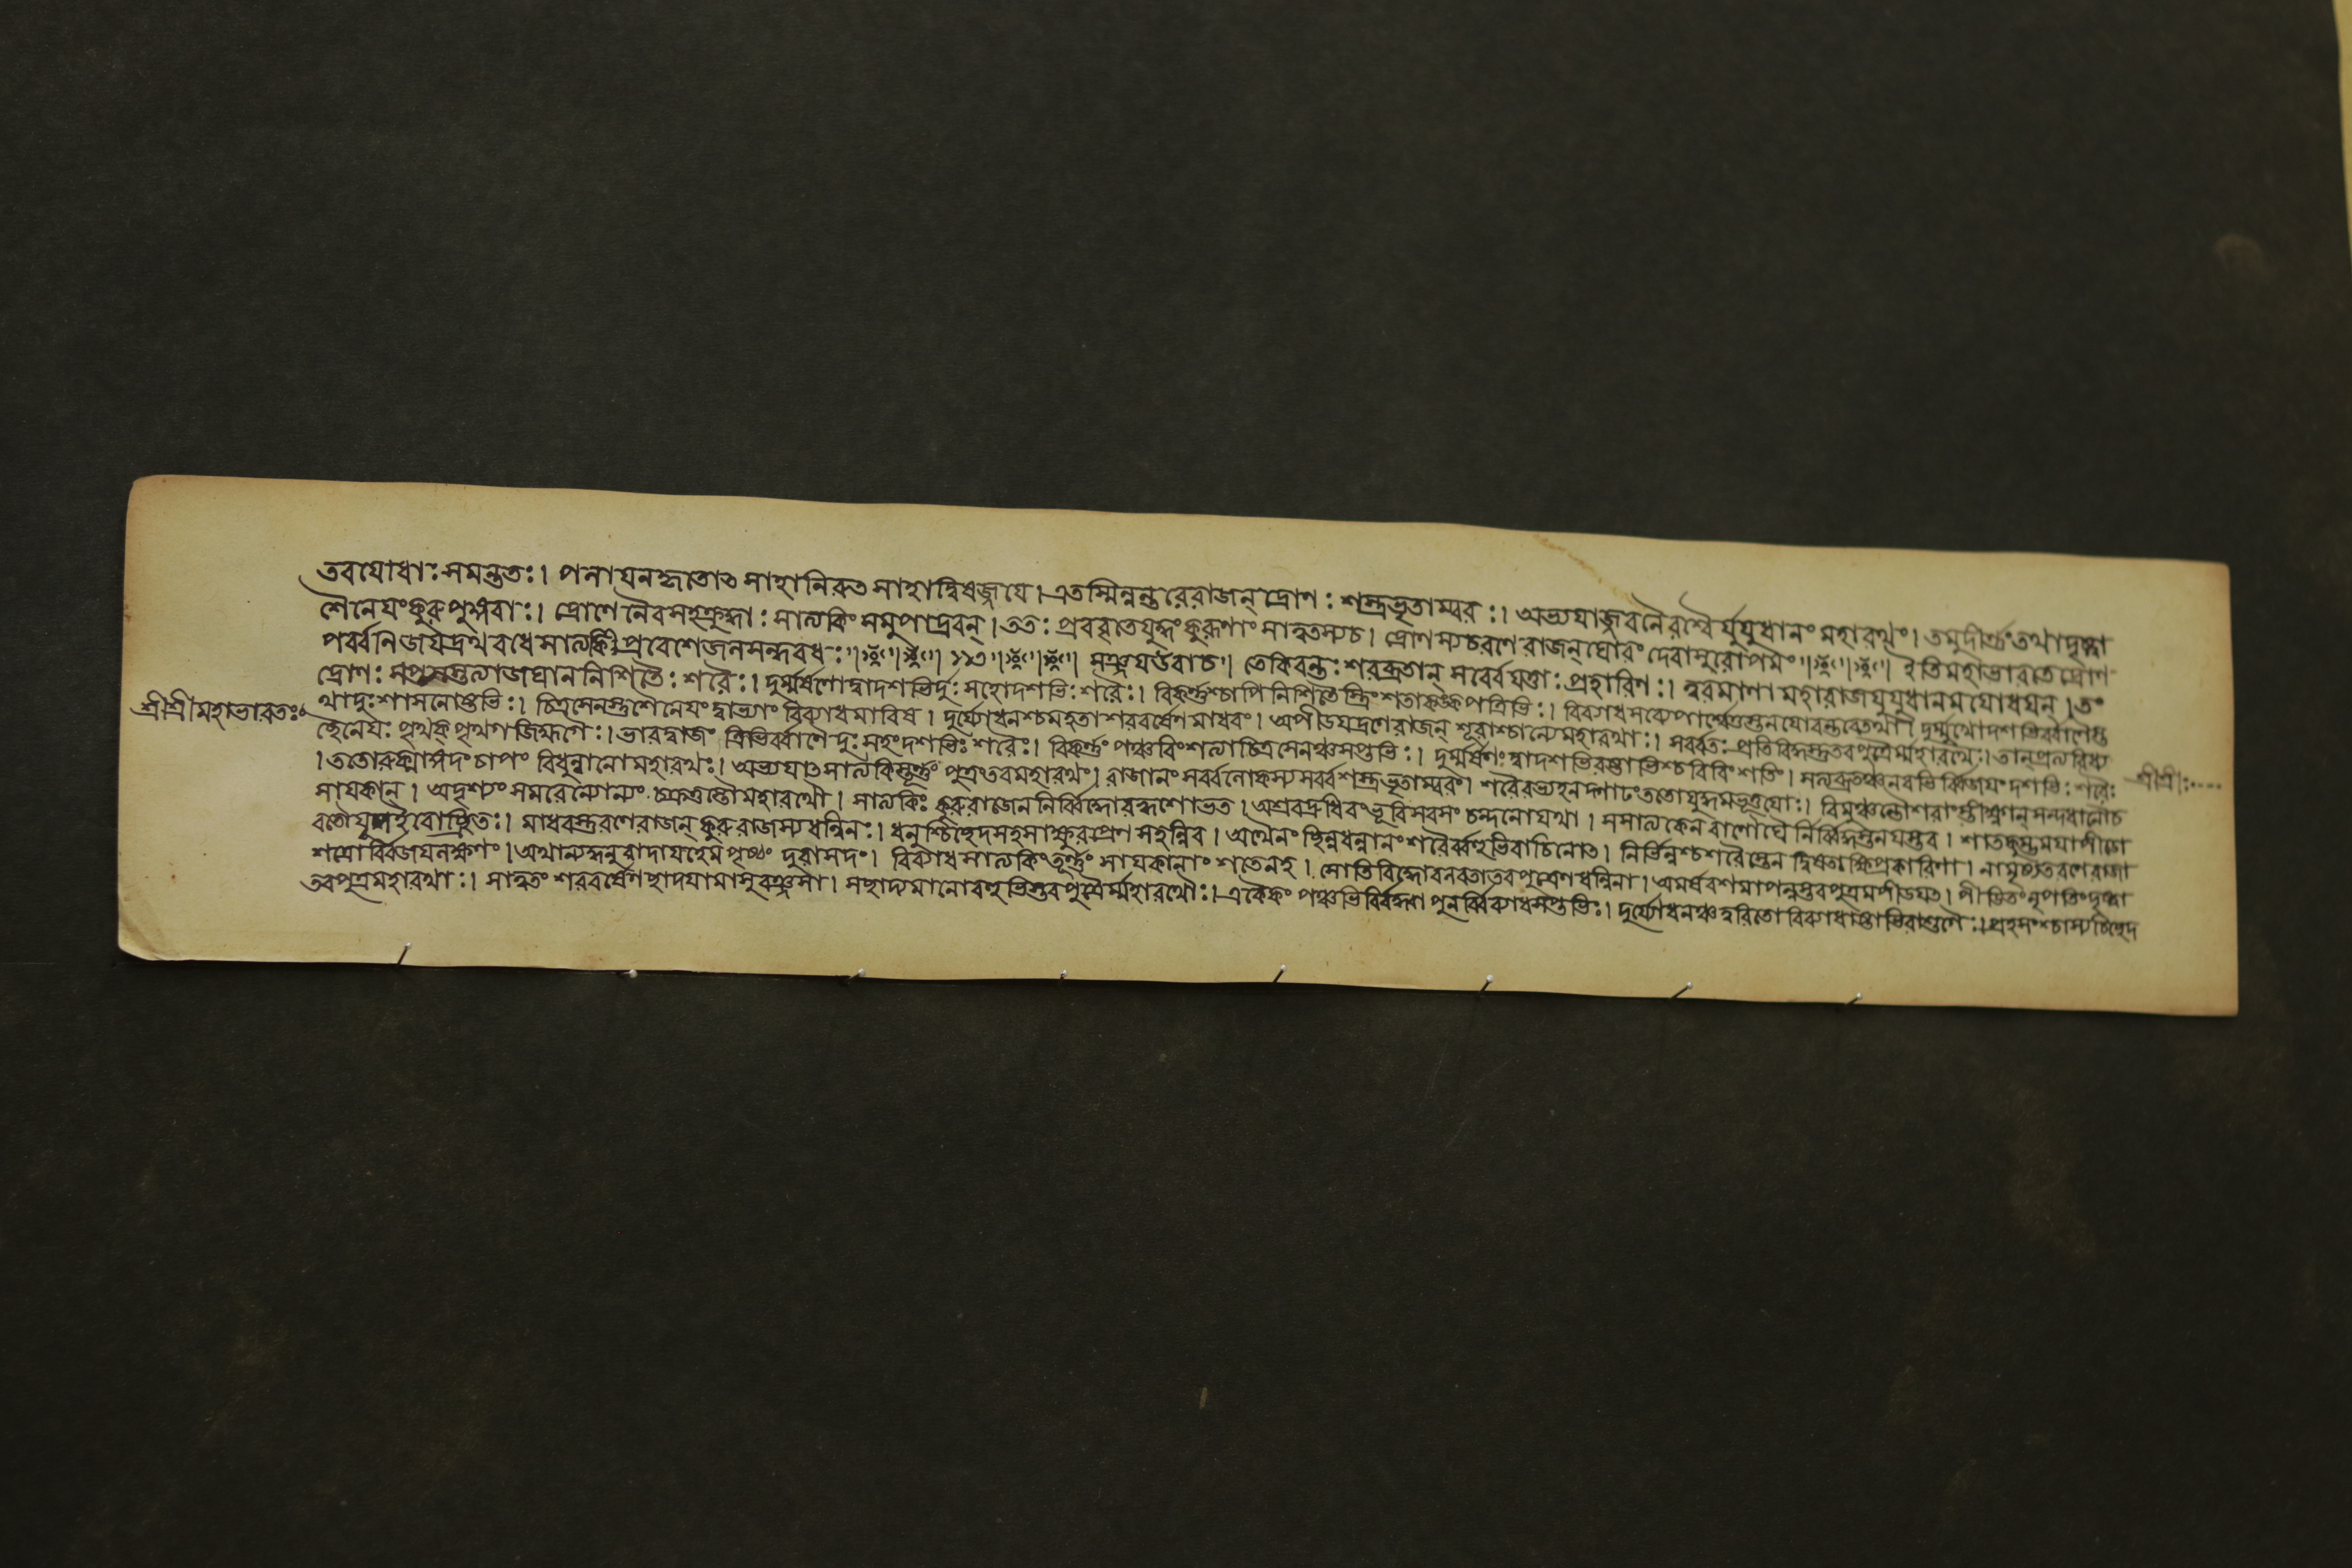 তবযোধাঃসমন্ততঃ। পলাযনকৃতোৎসাহানিরুৎসাহাদ্বিষজ্জযে। এতস্মিন্নন্তরেরাজন্ দ্রোণঃ শস্ত্রভৃতাম্বরঃ। অভ্যযাজ্জবনৈরশ্বৈর্যুযুধানং মহারথং। তমুদীর্ণ্ণংতথাদৃষ্ট্বা
শৈনেযংকুরুপুঙ্গবাঃ। দ্রোণেনৈবসহক্রুদ্ধাঃ সাত্যকিং সমুপাদ্রবন্। ততঃ প্রববৃতেযুদ্ধংকুরূণাং সাত্বতস্যচ। দ্রোণস্যচরণে রাজন্ ঘোরং দেবাসুরোপমং॥ ইতিমহাভারতেদ্রোণ
পর্ব্বনিজযদ্রথবধেসাত্যকিপ্রবেশেজনসন্দবধঃ॥ ১১৩॥ সঞ্জযউবাচ॥ তেকিরন্তঃ শরব্রাতান্ সর্ব্বেযত্তাঃ প্রহারিণঃ। ত্বরমাণা মহারাজযুযুধানমযোধযন্। তং
দ্রোণঃ সপ্তসপ্তত্যাজঘাননিশিতৈঃ শরৈঃ। দুর্ম্মর্ষণোদ্বাদশভির্দুঃসহোদশভিঃ শরৈঃ। বিকর্ণ্ণশ্চাপিনিশিতৈস্ত্রিংশতাকঙ্কপত্রিভিঃ। বিব্যাধসব্যেপার্শ্বেতুস্তনযোরন্তরেতথা। দুর্ম্মুখোদশভির্ব্বাণৈস্ত
থাদুঃশাসনোষ্টভিঃ। চিত্রসেনস্তুশৈনেযংদ্বাভ্যাং বিব্যাধমারিষ। দুর্য্যোধনশ্চমহতাশরবর্ষেণমাধবং। অপীডযদ্রণেরাজন্ শূরাশ্চান্যেমহারথাঃ। সর্ব্বতঃ প্রতিবিদ্ধস্তুতবপুত্রৈর্ম্মহারথৈঃ। তান্প্রত্যবিধ্য
চ্ছৈনেযঃ পৃথক্ পৃথগজিহ্মগৈঃ। ভারদ্বাজং ত্রিভির্ব্বাণৈর্দুঃসহংদশভিঃ শরৈঃ। বিকর্ণ্ণং পঞ্চবিংশত্যাচিত্রসেনঞ্চসপ্তভিঃ। দুর্ম্মর্ষণং দ্বাদশভিরষ্টাভিশ্চবিবিংশতিং। সত্যব্রতঞ্চনবভির্ব্বিজযং দশভিঃ শরৈঃ
। ততোরুক্মাঙ্গদংচাপং বিধুন্বানোমহারথঃ। অভ্যযাৎসাত্যকিস্তূর্ণ্ণং পুত্রংতবমহারথং। রাজানং সর্ব্বলোকস্যসর্ব্বশস্ত্রভৃতাম্বরং। শরৈরভ্যহনদ্গাঢংততোযুদ্ধমভূত্তযোঃ। বিমুঞ্চন্তৌশরাংস্তীক্ষ্ণান্সন্দধানৌচ
সাযকান্। অদৃশ্যং সমরেন্যোন্যং চক্রতুস্তৌমহারথৌ। সাত্যকিঃ কুরুরাজেননির্ব্বিদ্ধোবহ্বশোভত। অশ্রবদ্রুধিরংভূরিস্বরসং চন্দনোযথা। সসাত্যকেনবাণৌঘৈ র্নির্ব্বিদ্ধস্তনযস্তব। শাতকুম্ভমযাপীডো
বভৌযুপইবোচ্ছ্রিতঃ। মাধবস্তুরণেরাজন্ কুরুরাজস্যধন্বিনঃ। ধনুশ্চিচ্ছেদসহসাক্ষুরপ্রেণ সহন্নিব। অথৈনং ছিন্নধন্বানং শরৈর্ব্বহুভিরাচিনোৎ। নির্ভিন্নশ্চশরৈস্তেন দ্বিষতাক্ষিপ্রকারিণা। নামৃষ্যতরণেরাজা
শত্রোর্ব্বিজযলক্ষণং। অথান্যদ্ধনুরাদাযহেমপৃষ্ঠং দুরাসদং। বিব্যাধসাত্যকিংতূর্ণ্ণং সাযকানাং শতেনহ। সোতিবিদ্ধোবলবতাতবপুত্রেণধন্বিনা। অমর্ষবশমাপন্নস্তবপুত্রমপীডযৎ। পীডিতংনৃপতিংদৃষ্ট্বা
তবপুত্রমহারথাঃ। সাত্বতং শরবর্ষেণছাদযামাসুরঞ্জসা। সছাদ্যমানোবহুভিস্তবপুত্রৈর্ম্মহারথৌঃ। একৈকং পঞ্চভির্ব্বিদ্ধা পুনর্ব্বিব্যাধসপ্তভিঃ। দুর্য্যোধনঞ্চত্বরিতোবিব্যাধাষ্টাভিরাশুগৈঃ। প্রহসংশ্চাস্যচিচ্ছেদ
শ্রীশ্রীমহাভারতঃ॰
শ্রীশ্রীঃ....